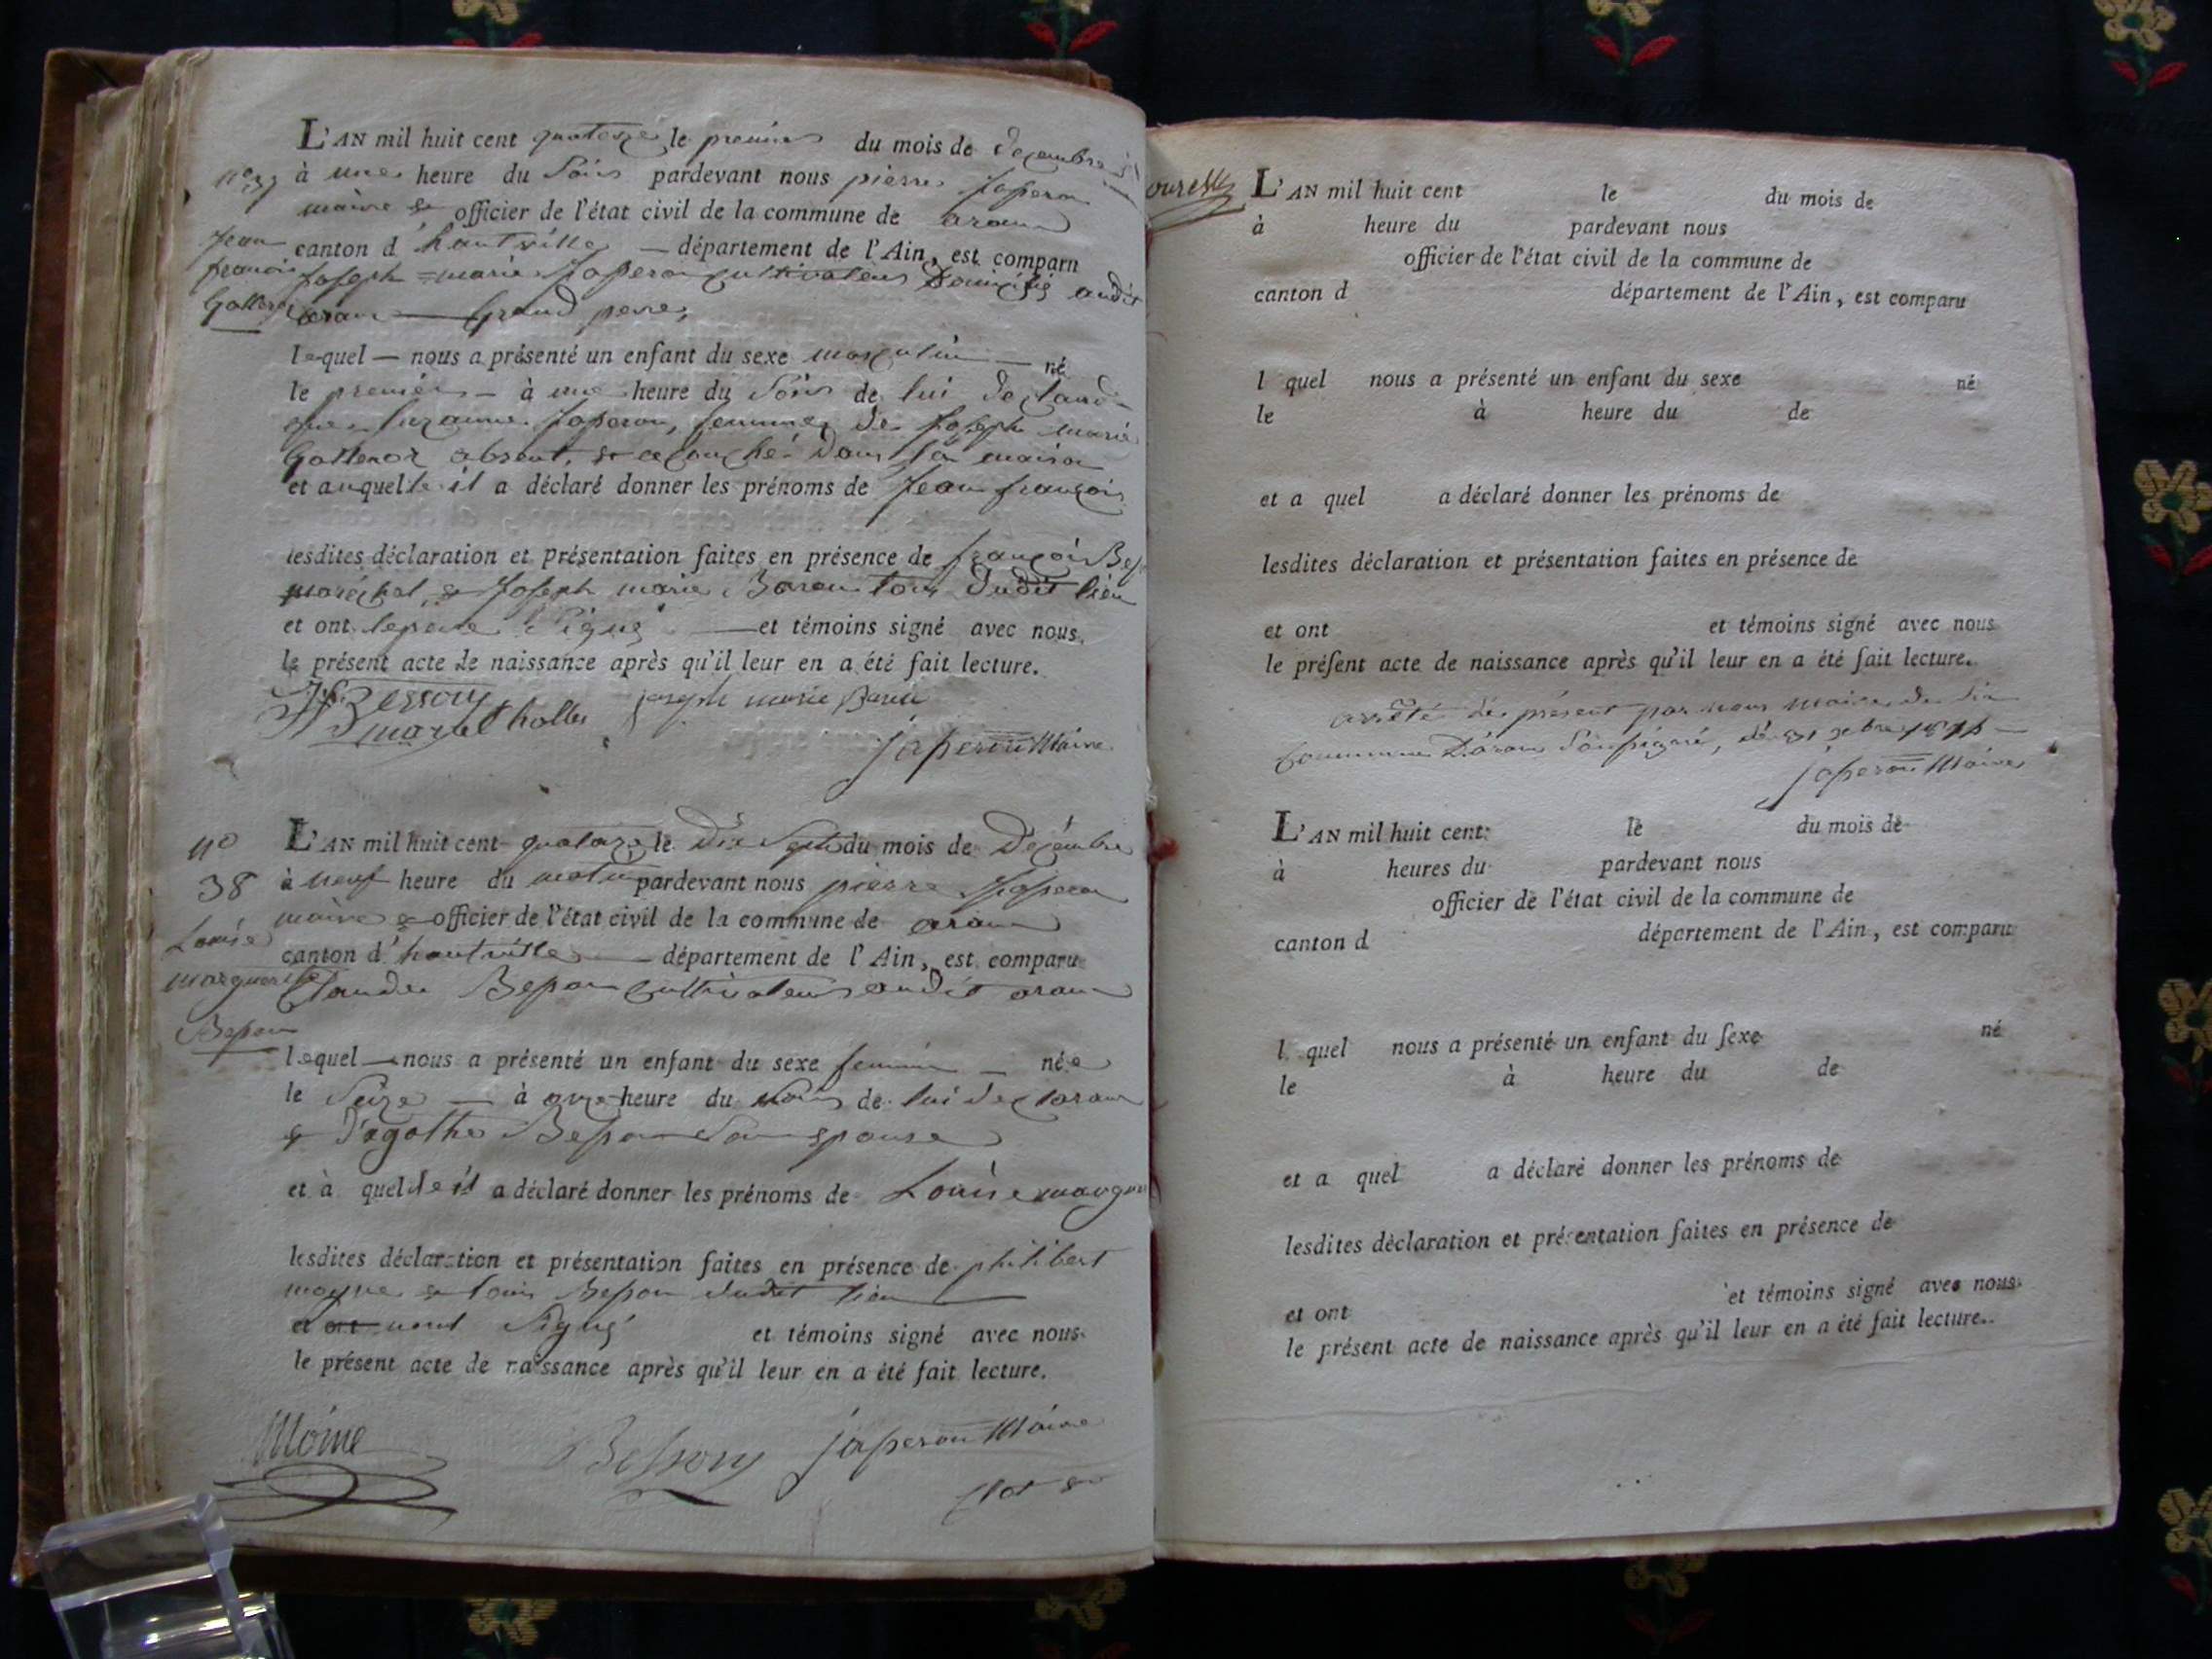 L'AN mil huit cent quatorze le premier du mois de decembre
n° 37 à une heure du Soir pardevant nous pierre Japeron
maire & officier de l'état civil de la commune de aran
canton d'hautville — département de l'Ain, est comparu
Jean françois
Joseph = marie Japeron cultivateur Domicilié audit
aran — Grand pere,
lequel — nous a présenté un enfant du sexe masculin — né
le premier — à une heure du Soir de lui declarant
que Suzanne Japeron, femme de Joseph marie
absent, & acouché dans sa maison
et auquel il a déclaré donner les prénoms de Jean françois
lesdites déclaration et présentation faites en présence de françois
maréchal, & Joseph marie tous dudit lieu
et ont Signé — et témoins signé avec nous,
le présent acte de naissance après qu'il leur en a été fait lecture.
joseph marie
japeron Maire
L'AN mil huit cent quatorze le Dix Sept du mois de Décembre
n° 38 à neuf heure du matin pardevant nous pierre Japeron
maire & officier de l'état civil de la commune de aran
Louise
canton d'hautville — département de l'Ain, est comparu
marguerite
Claude Besson cultivateur audit aran
Besson
lequel — nous a présenté un enfant du sexe feminin — née
le Seize — à onze heure du Soir de lui declarant
& d'agathe Besson Son epouse
et à quelle il a déclaré donner les prénoms de Louise
lesdites déclaration et présentation faites en présence de philibert
moyne & louis Besson dudit lieu —
et ont Signé et témoins signé avec nous
le présent acte de naissance après qu'il leur en a été fait lecture.
Moine Besson japeron Maire
L'AN mil huit cent le du mois de
à heure du pardevant nous
officier de l'état civil de la commune de
canton d département de l'Ain, est comparu
l quel nous a présenté un enfant du sexe né
le à heure du de
et a quel a déclaré donner les prénoms de
lesdites déclaration et présentation faites en présence de
et ont et témoins signé avec nous
le présent acte de naissance après qu'il leur en a été fait lecture.
arrêté le présent par nous maire de la
commune D'aran Soussigné,
japeron Maire
L'AN mil huit cent le du mois de
à heures du pardevant nous
officier de l'état civil de la commune de
canton d département de l'Ain, est comparu
l quel nous a présenté un enfant du sexe né
le à heure du de
et a quel a déclaré donner les prénoms de
lesdites déclaration et présentation faites en présence de
et ont et témoins signé avec nous
le présent acte de naissance après qu'il leur en a été fait lecture.